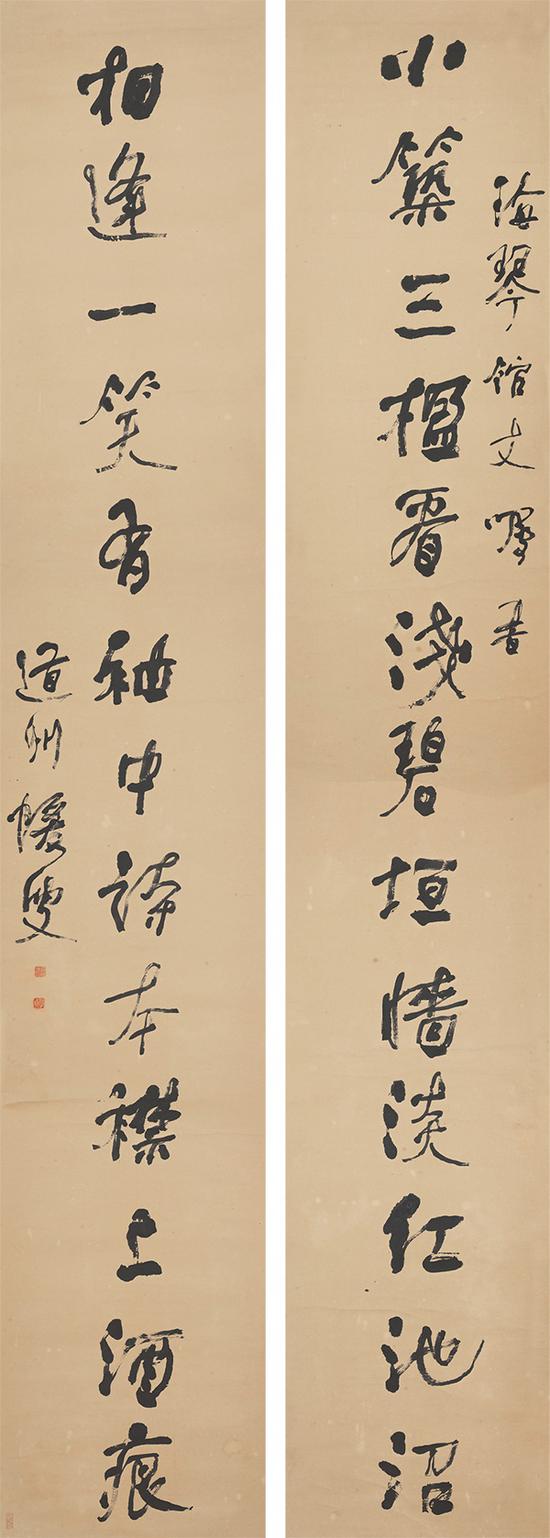 海琴館丈囑書
小築三楹看淺碧垣墻淡紅池沼
相逢一笑有袖中詩本襟上酒痕
道州蝯叟